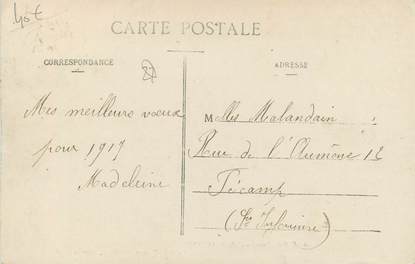 40€
CARTE POSTALE
CORRESPONDANCE
ADRESSE
Mes meilleurs vœux
pour 1917
Madeleine
Melles Malandain
Rue de l'Aumône 12
Fécamp
(Sne Inférieure)